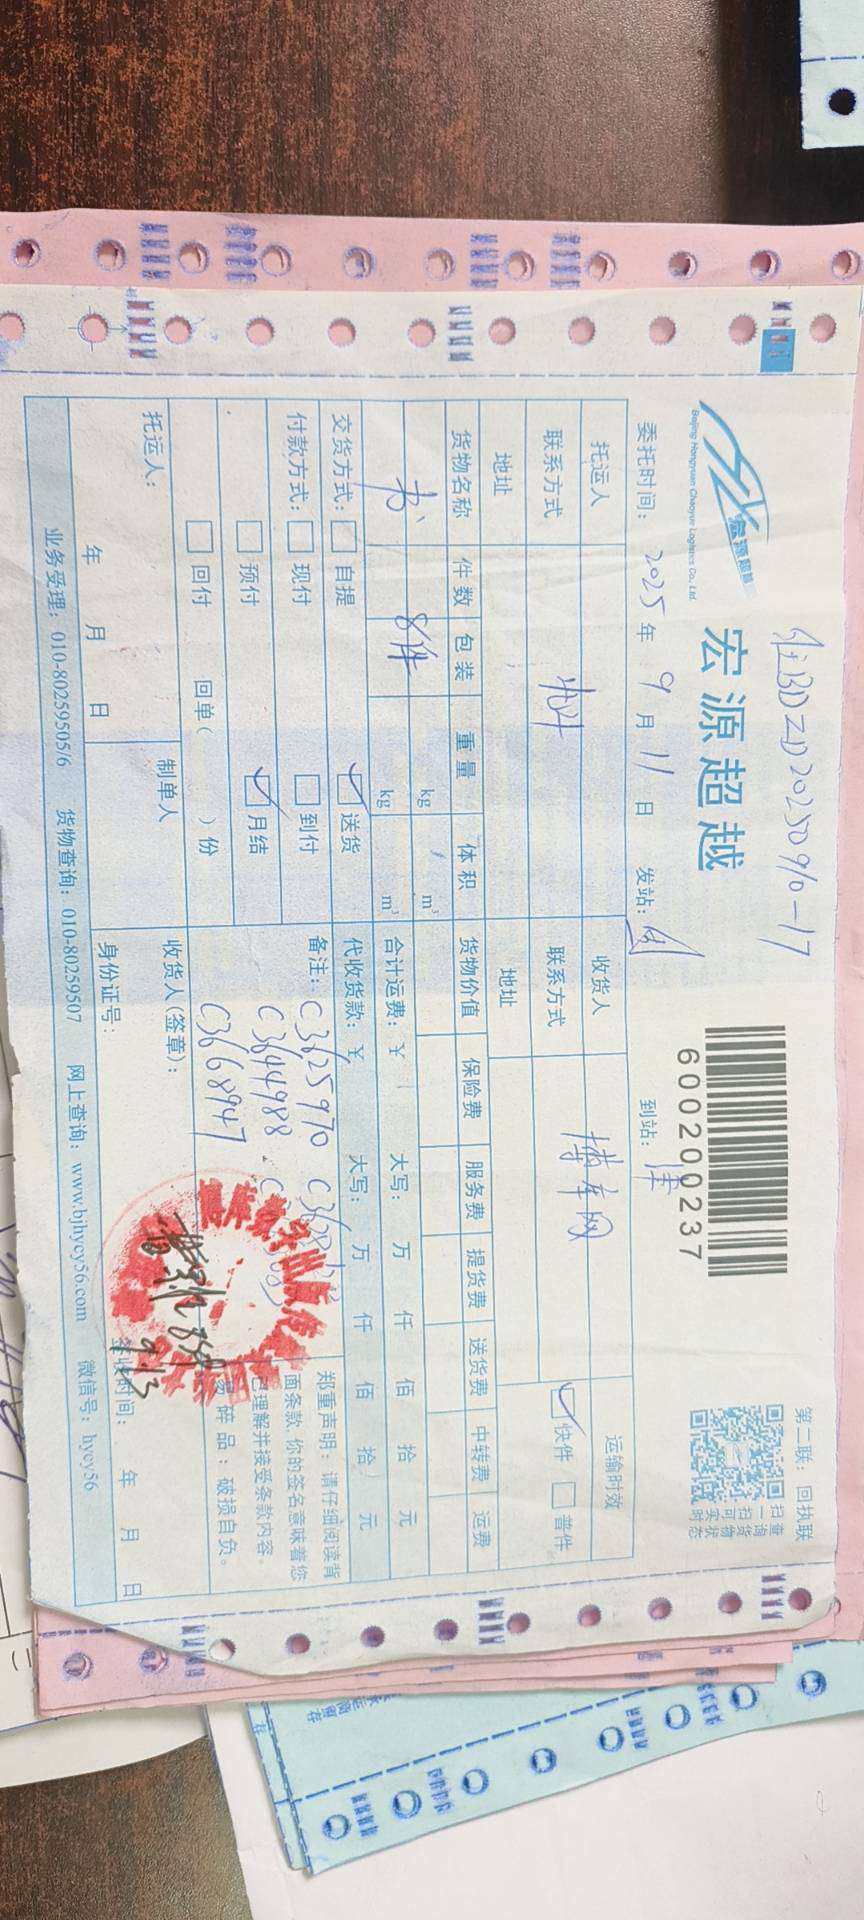 第二联：回执联
宏源超越
Beijing Hongyuan Chaoyue Logistics Co., Ltd.
宏源超越
600200237
扫查
一询
扫货
可物
实状
时态
委托时间：2025年9月11日 发站： 到站：津
托运人 收货人 运输时效
联系方式 联系方式 博库网 快件 普件
地址 地址
货物名称 件数 包装 重量 体积 货物价值 保险费 服务费 提货费 送货费 中转费 运费
书 8件 kg m³
kg m³ 合计运费：¥ 大写： 万 仟 佰 拾 元
交货方式： 自提 送货 代收货款：¥ 大写： 万 仟 佰 拾 元
付款方式： 现付 到付
预付 月结
回付 回单（ ）份
备注：C3625970
C3644988
C3668947
郑重声明：请仔细阅读背
面条款，你的签名意味着您
已理解并接受条款内容。
易碎品：破损自负。
托运人： 制单人 收货人(签章)：
9/13
年 月 日 身份证号： 签收时间： 年 月 日
业务受理：010-80259505/6 货物查询：010-80259507 网上查询：www.bjhycy56.com 微信号：hycy56